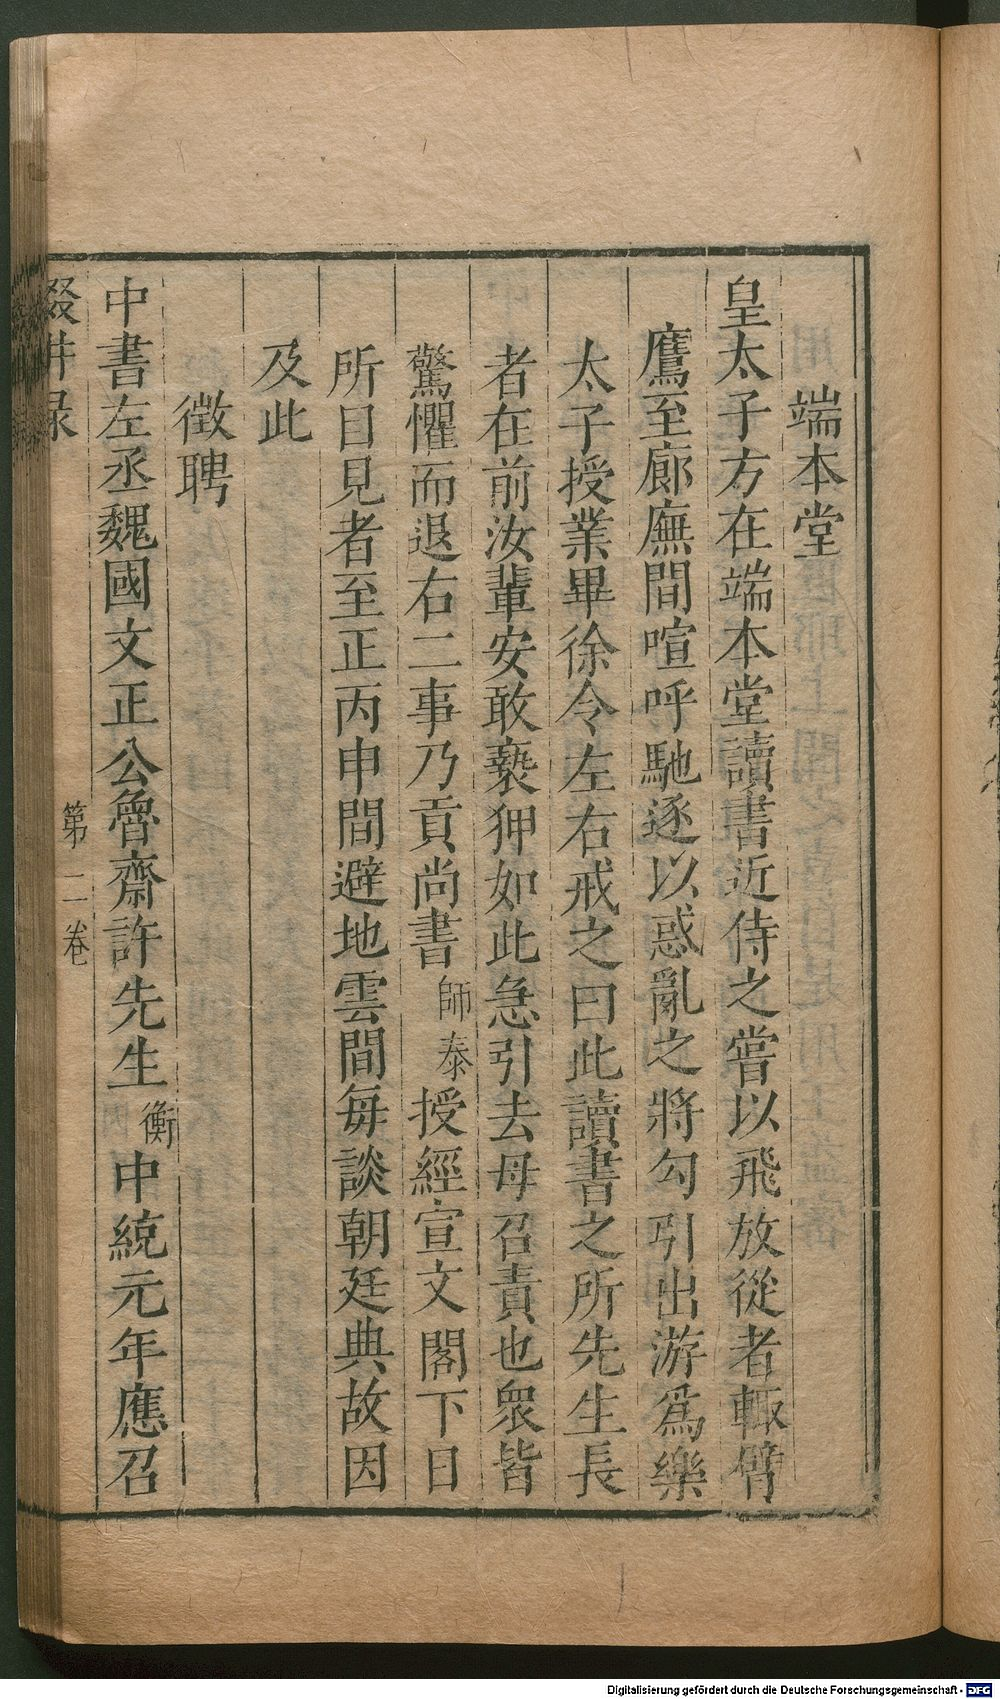 端本堂
皇太子方在端本堂讀書近侍之嘗以飛放從者輙臂
鷹至廊廡間喧呼馳逐以惑亂之將勾引出游爲樂
太子授業畢徐令左右戒之曰此讀書之所先生長
者在前汝輩安敢褻狎如此急引去毋召責也衆皆
驚懼而退右二事乃貢尚書師泰授經宣文閣下日
所目見者至正丙申間避地雲間每談朝廷典故因
及此
徵聘
中書左丞魏國文正公魯齋許先生衡中統元年應召
輟耕录
第二卷
Digitalisierung gefördert durch die Deutsche Forschungsgemeinschaft - DFG